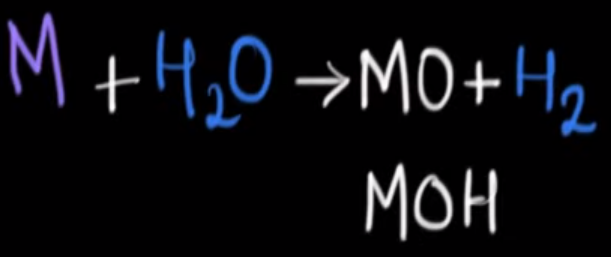 M + H₂O → MO + H₂
MOH